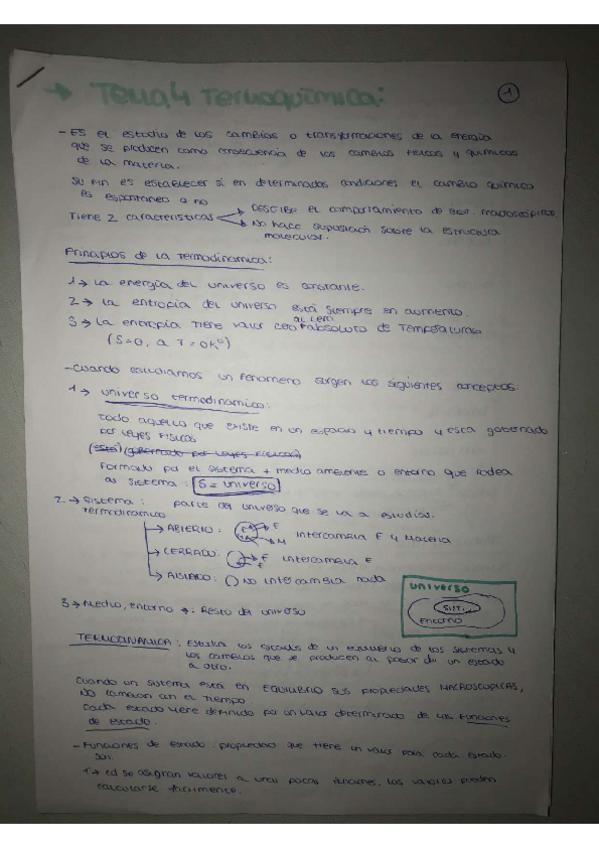 → Tema 4 Termoquímica:
1
- Es el estudio de los cambios o transformaciones de la energía
que se producen como consecuencia de los cambios físicos y químicos
de la materia.
Su fin es establecer si en determinadas condiciones el cambio químico
es espontaneo o no
Tiene 2 características
Describir el comportamiento de sist. macroscópicos
No hace suposición sobre la estructura
molecular.
Principios de la Termodinamica:
1→ La energía del universo es constante.
2→ La entropia del universo está siempre en aumento.
3→ La entropía tiene valor cero al cero absoluto de Temperaturas
(S=0, a T=0Kº)
- Cuando estudiamos un fenomeno surgen los siguientes conceptos:
1→ universo termodinamico:
Todo aquello que existe en un espacio y tiempo y está gobernado
por leyes físicas
Formado por el sistema + medio ambiente o entorno que rodea
al sistema: S = universo
2.→ Sistema: parte del universo que se va a estudiar.
termodinamico
→ ABIERTO: E M intercambia E y Materia
→ CERRADO: E E intercambia E
→ AISLADO: No intercambia nada
universo
SIST.
Entorno
3→ Medio, entorno →: Resto del universo
TERMODINAMICA: Estudia los estados de un equilibrio de los sistemas y
los cambios que se producen al pasar de un estado
a otro.
Cuando un sistema está en EQUILIBRIO sus propiedades MACROSCOPICAS,
NO cambian con el tiempo.
Cada estado viene definido por un valor determinado de las Funciones
de Estado.
- Funciones de estado: propiedad que tiene un valor para cada estado.
son:
1→ si se asignan valores a unas pocas funciones, los valores pueden
calcularse facilmente.